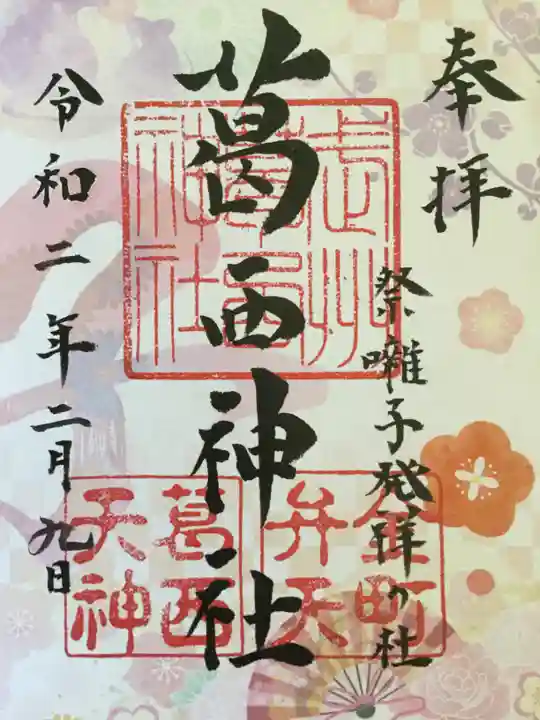 奉拝
祭囃子発祥の社
葛西神社
令和二年二月九日
武州
葛西
神社
金町
弁天
葛西
天神